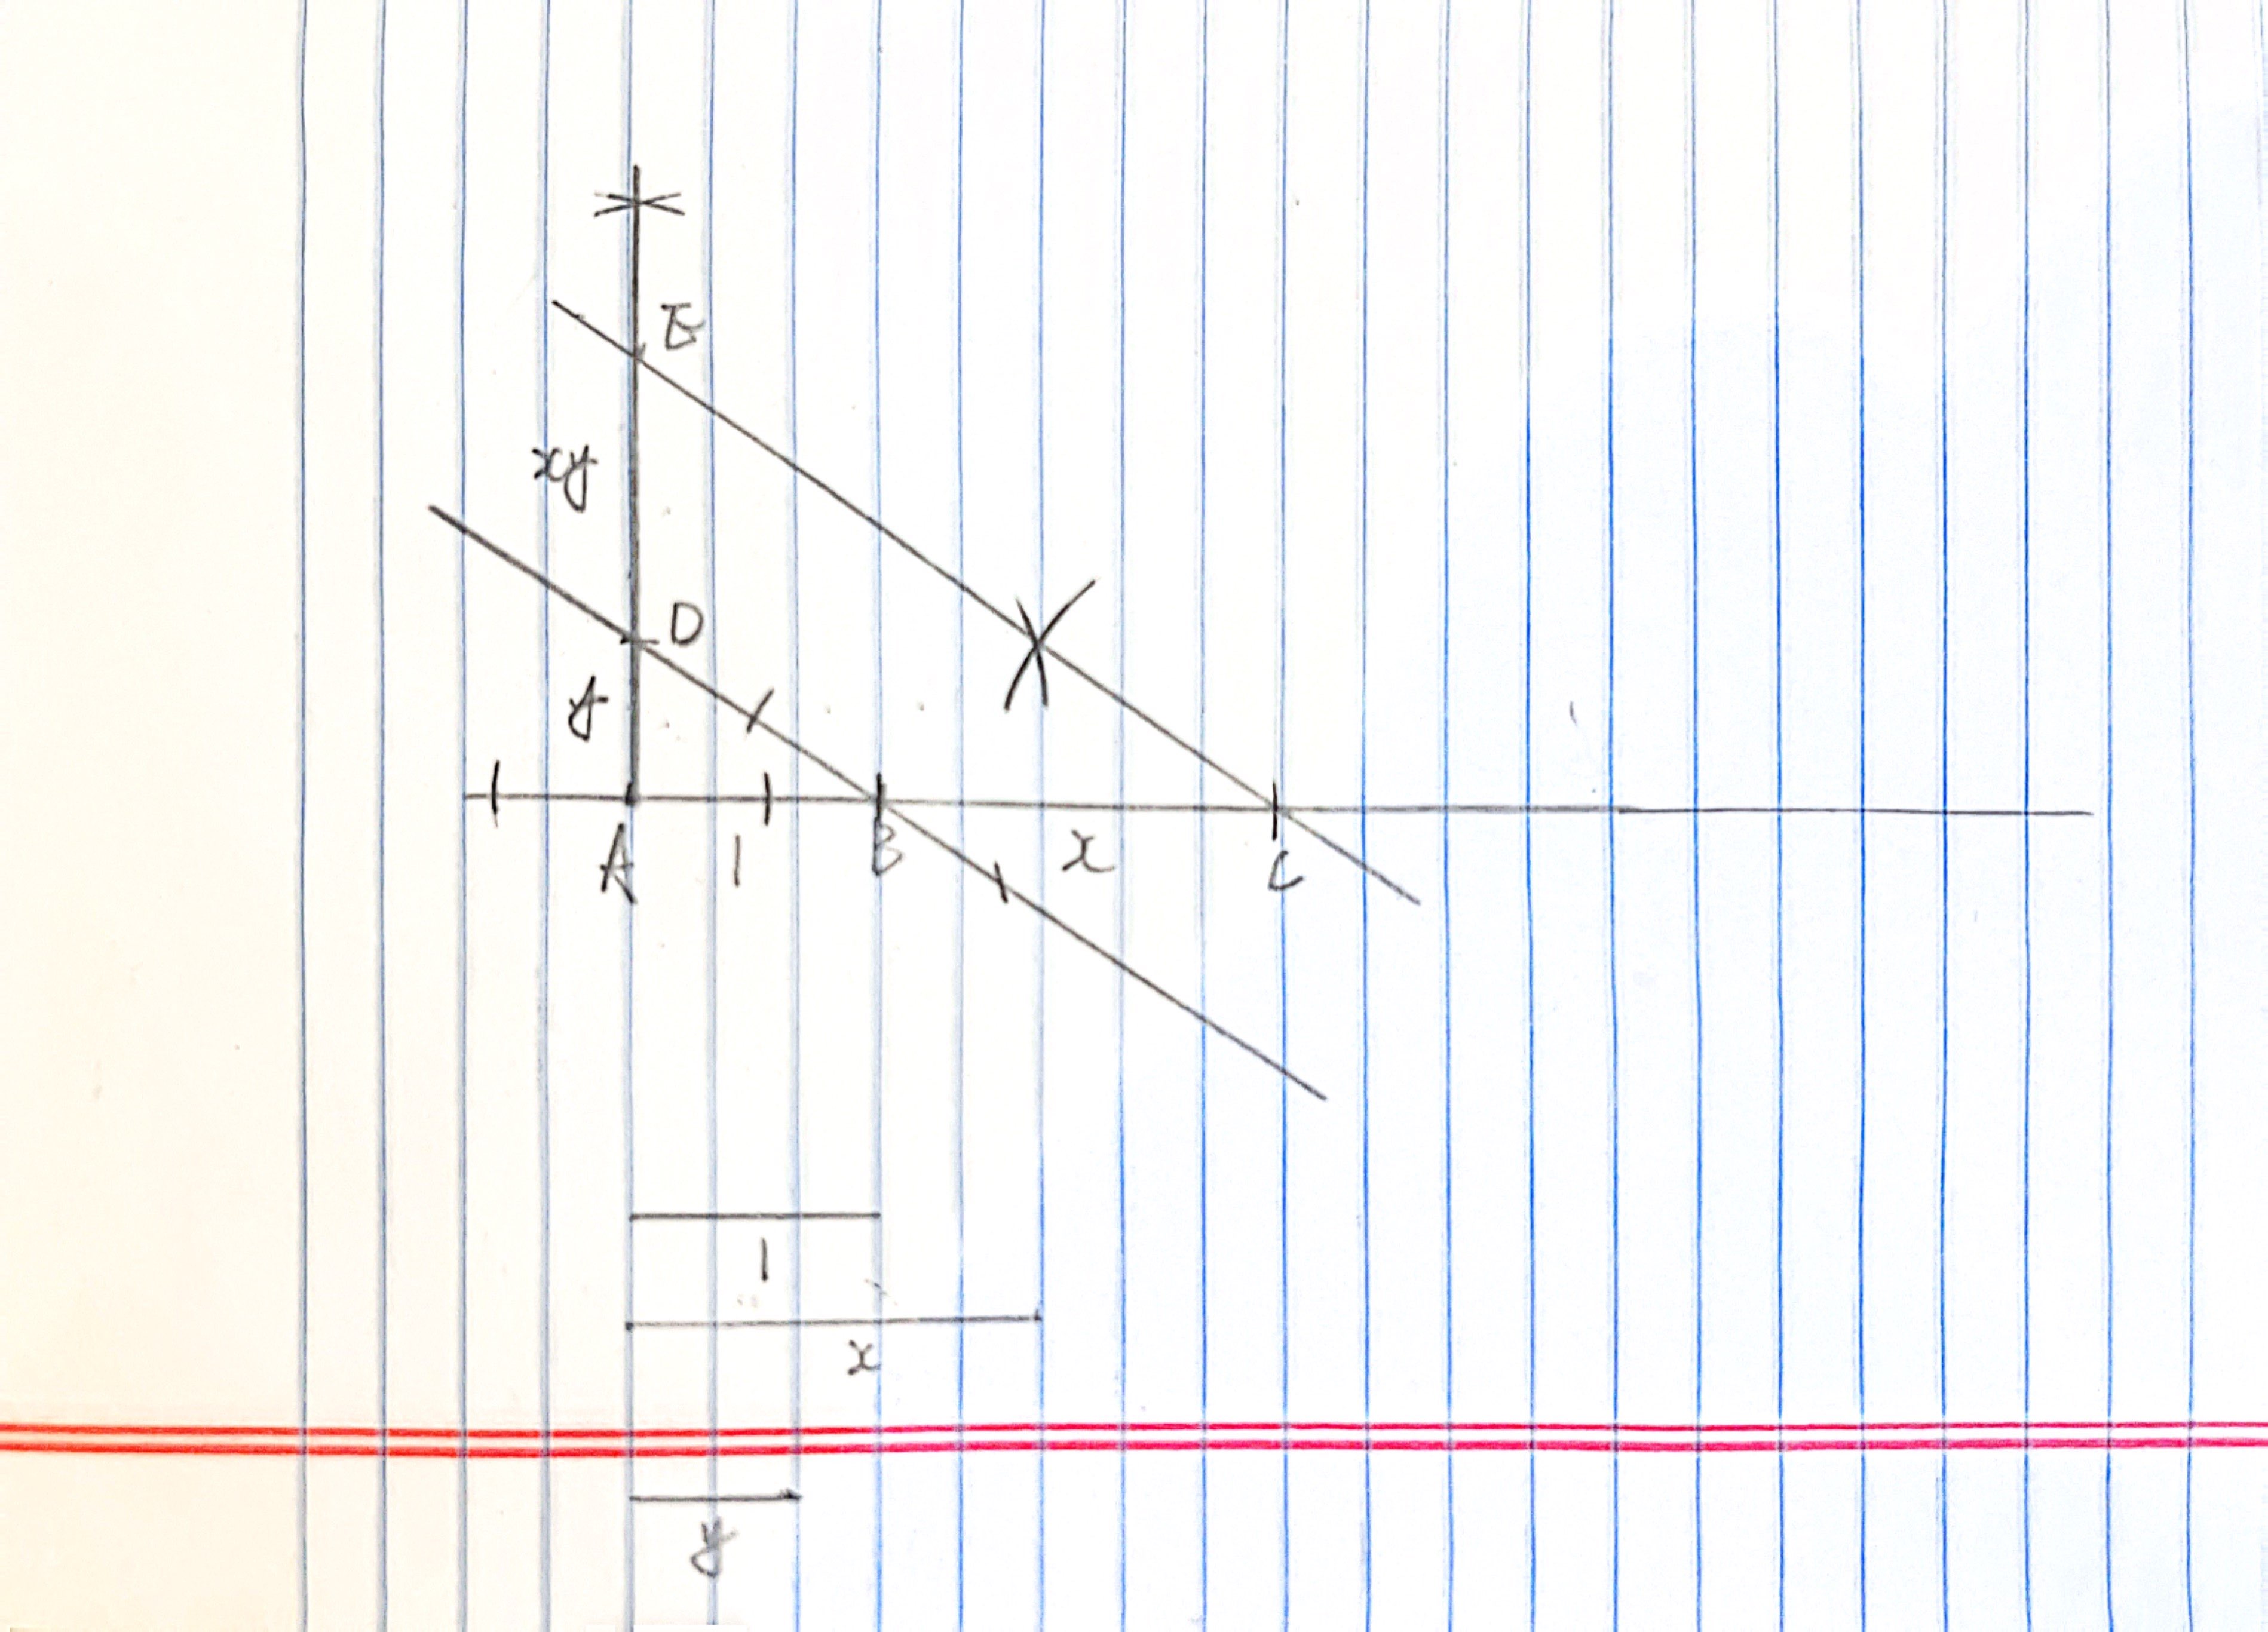 E
xy
D
y
A 1 B x C
1
x
y